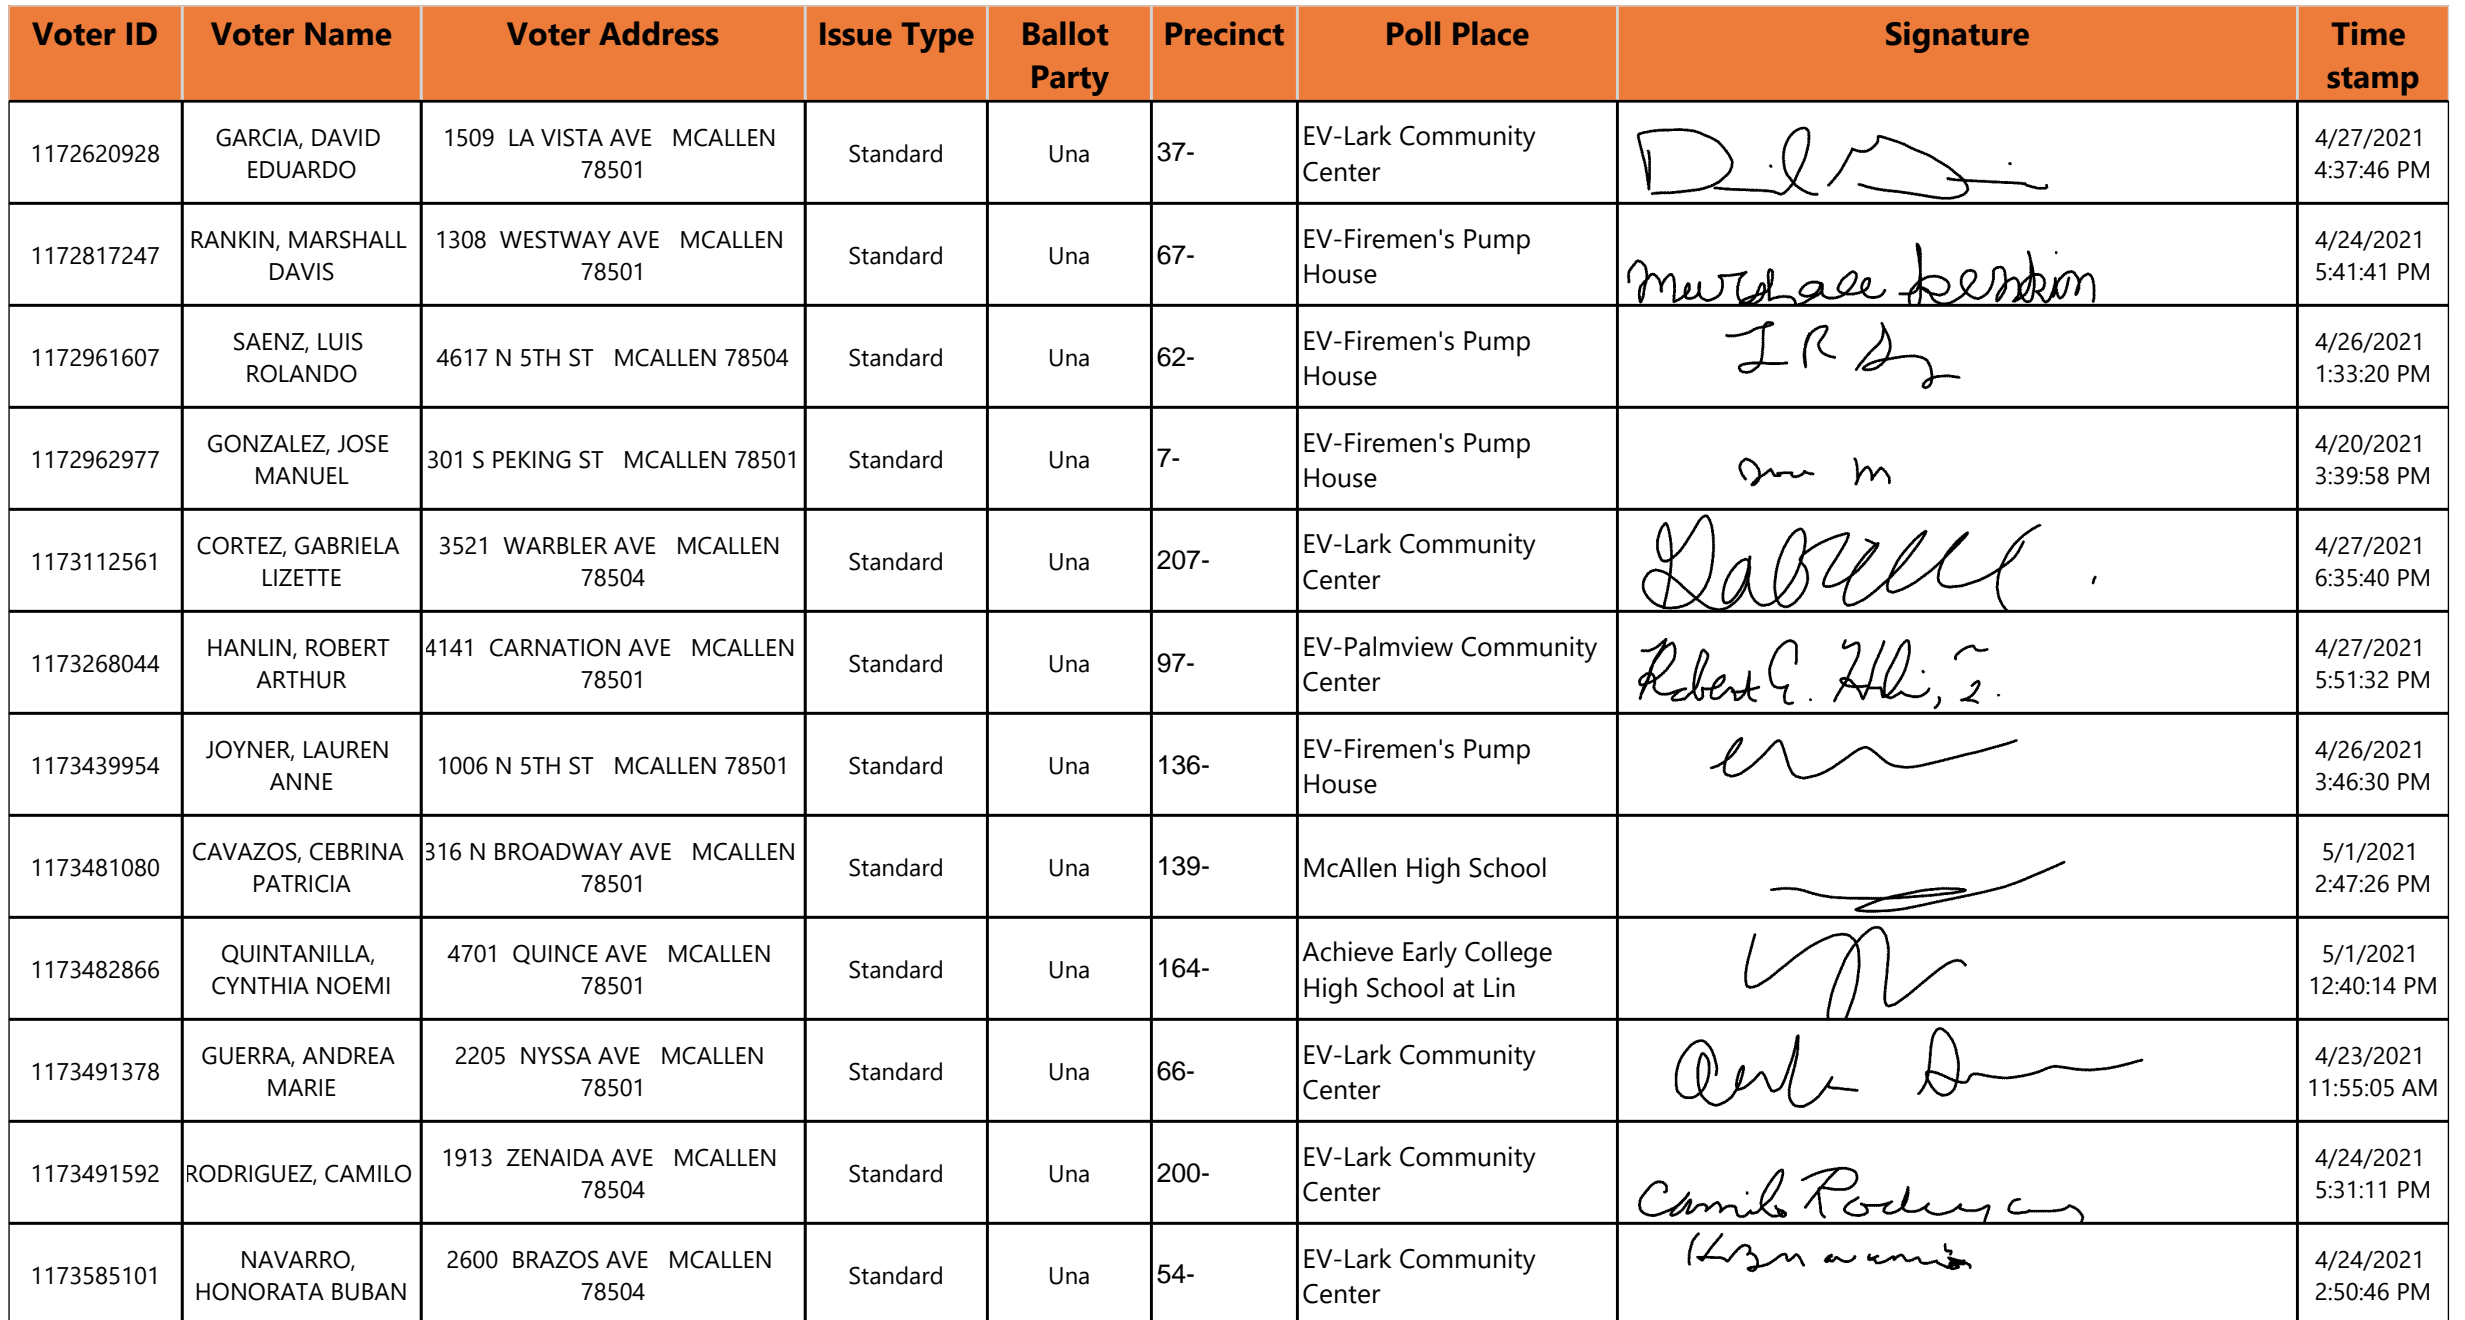 Voter ID Voter Name Voter Address Issue Type Ballot Party Precinct Poll Place Signature Time stamp
1172620928 GARCIA, DAVID EDUARDO 1509 LA VISTA AVE MCALLEN 78501 Standard Una 37- EV-Lark Community Center 4/27/2021 4:37:46 PM
1172817247 RANKIN, MARSHALL DAVIS 1308 WESTWAY AVE MCALLEN 78501 Standard Una 67- EV-Firemen's Pump House 4/24/2021 5:41:41 PM
1172961607 SAENZ, LUIS ROLANDO 4617 N 5TH ST MCALLEN 78504 Standard Una 62- EV-Firemen's Pump House 4/26/2021 1:33:20 PM
1172962977 GONZALEZ, JOSE MANUEL 301 S PEKING ST MCALLEN 78501 Standard Una 7- EV-Firemen's Pump House 4/20/2021 3:39:58 PM
1173112561 CORTEZ, GABRIELA LIZETTE 3521 WARBLER AVE MCALLEN 78504 Standard Una 207- EV-Lark Community Center 4/27/2021 6:35:40 PM
1173268044 HANLIN, ROBERT ARTHUR 4141 CARNATION AVE MCALLEN 78501 Standard Una 97- EV-Palmview Community Center Robert 4/27/2021 5:51:32 PM
1173439954 JOYNER, LAUREN ANNE 1006 N 5TH ST MCALLEN 78501 Standard Una 136- EV-Firemen's Pump House 4/26/2021 3:46:30 PM
1173481080 CAVAZOS, CEBRINA PATRICIA 316 N BROADWAY AVE MCALLEN 78501 Standard Una 139- McAllen High School 5/1/2021 2:47:26 PM
1173482866 QUINTANILLA, CYNTHIA NOEMI 4701 QUINCE AVE MCALLEN 78501 Standard Una 164- Achieve Early College High School at Lin 5/1/2021 12:40:14 PM
1173491378 GUERRA, ANDREA MARIE 2205 NYSSA AVE MCALLEN 78501 Standard Una 66- EV-Lark Community Center 4/23/2021 11:55:05 AM
1173491592 RODRIGUEZ, CAMILO 1913 ZENAIDA AVE MCALLEN 78504 Standard Una 200- EV-Lark Community Center Camilo 4/24/2021 5:31:11 PM
1173585101 NAVARRO, HONORATA BUBAN 2600 BRAZOS AVE MCALLEN 78504 Standard Una 54- EV-Lark Community Center 4/24/2021 2:50:46 PM